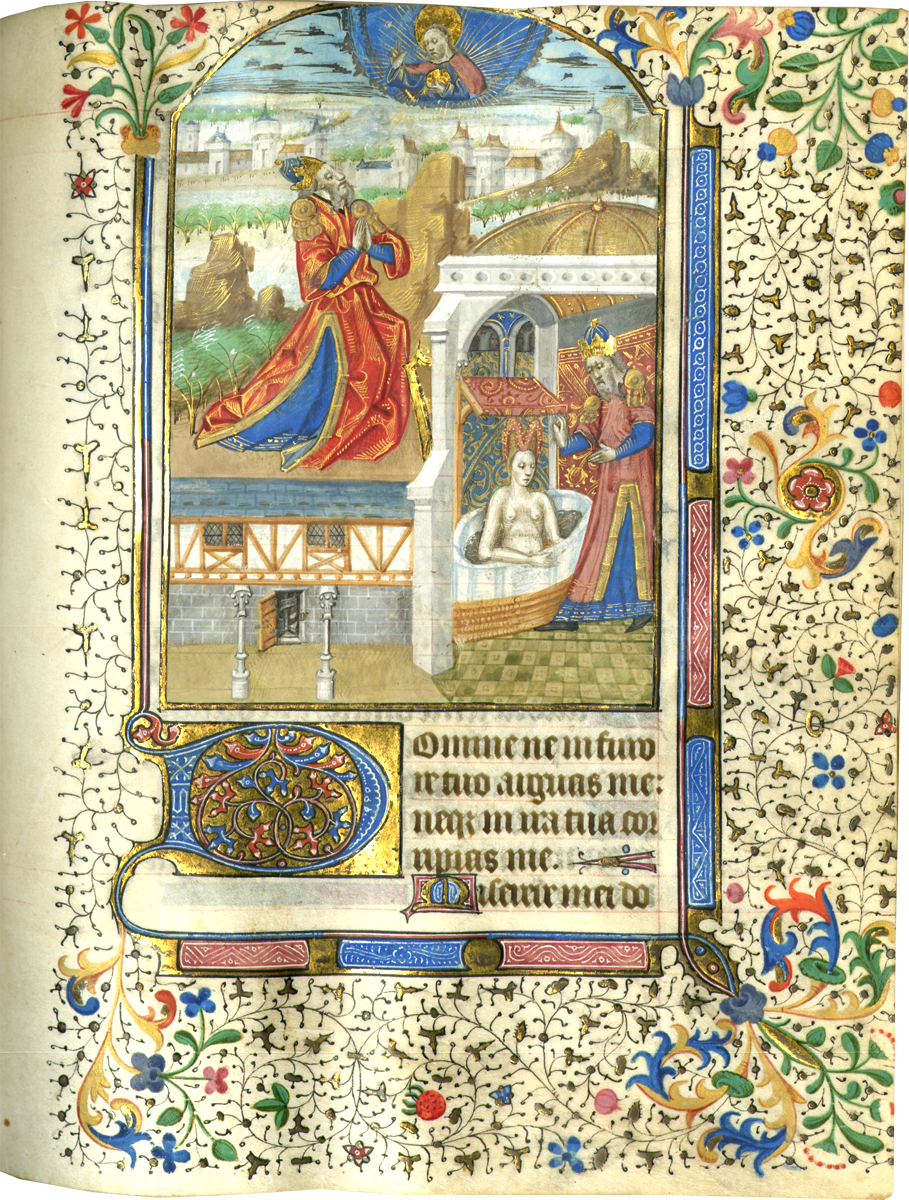 DOmine ne in furo
re tuo arguas me:
neqꝫ in ira tua cor
ripias me.
Miserere mei do